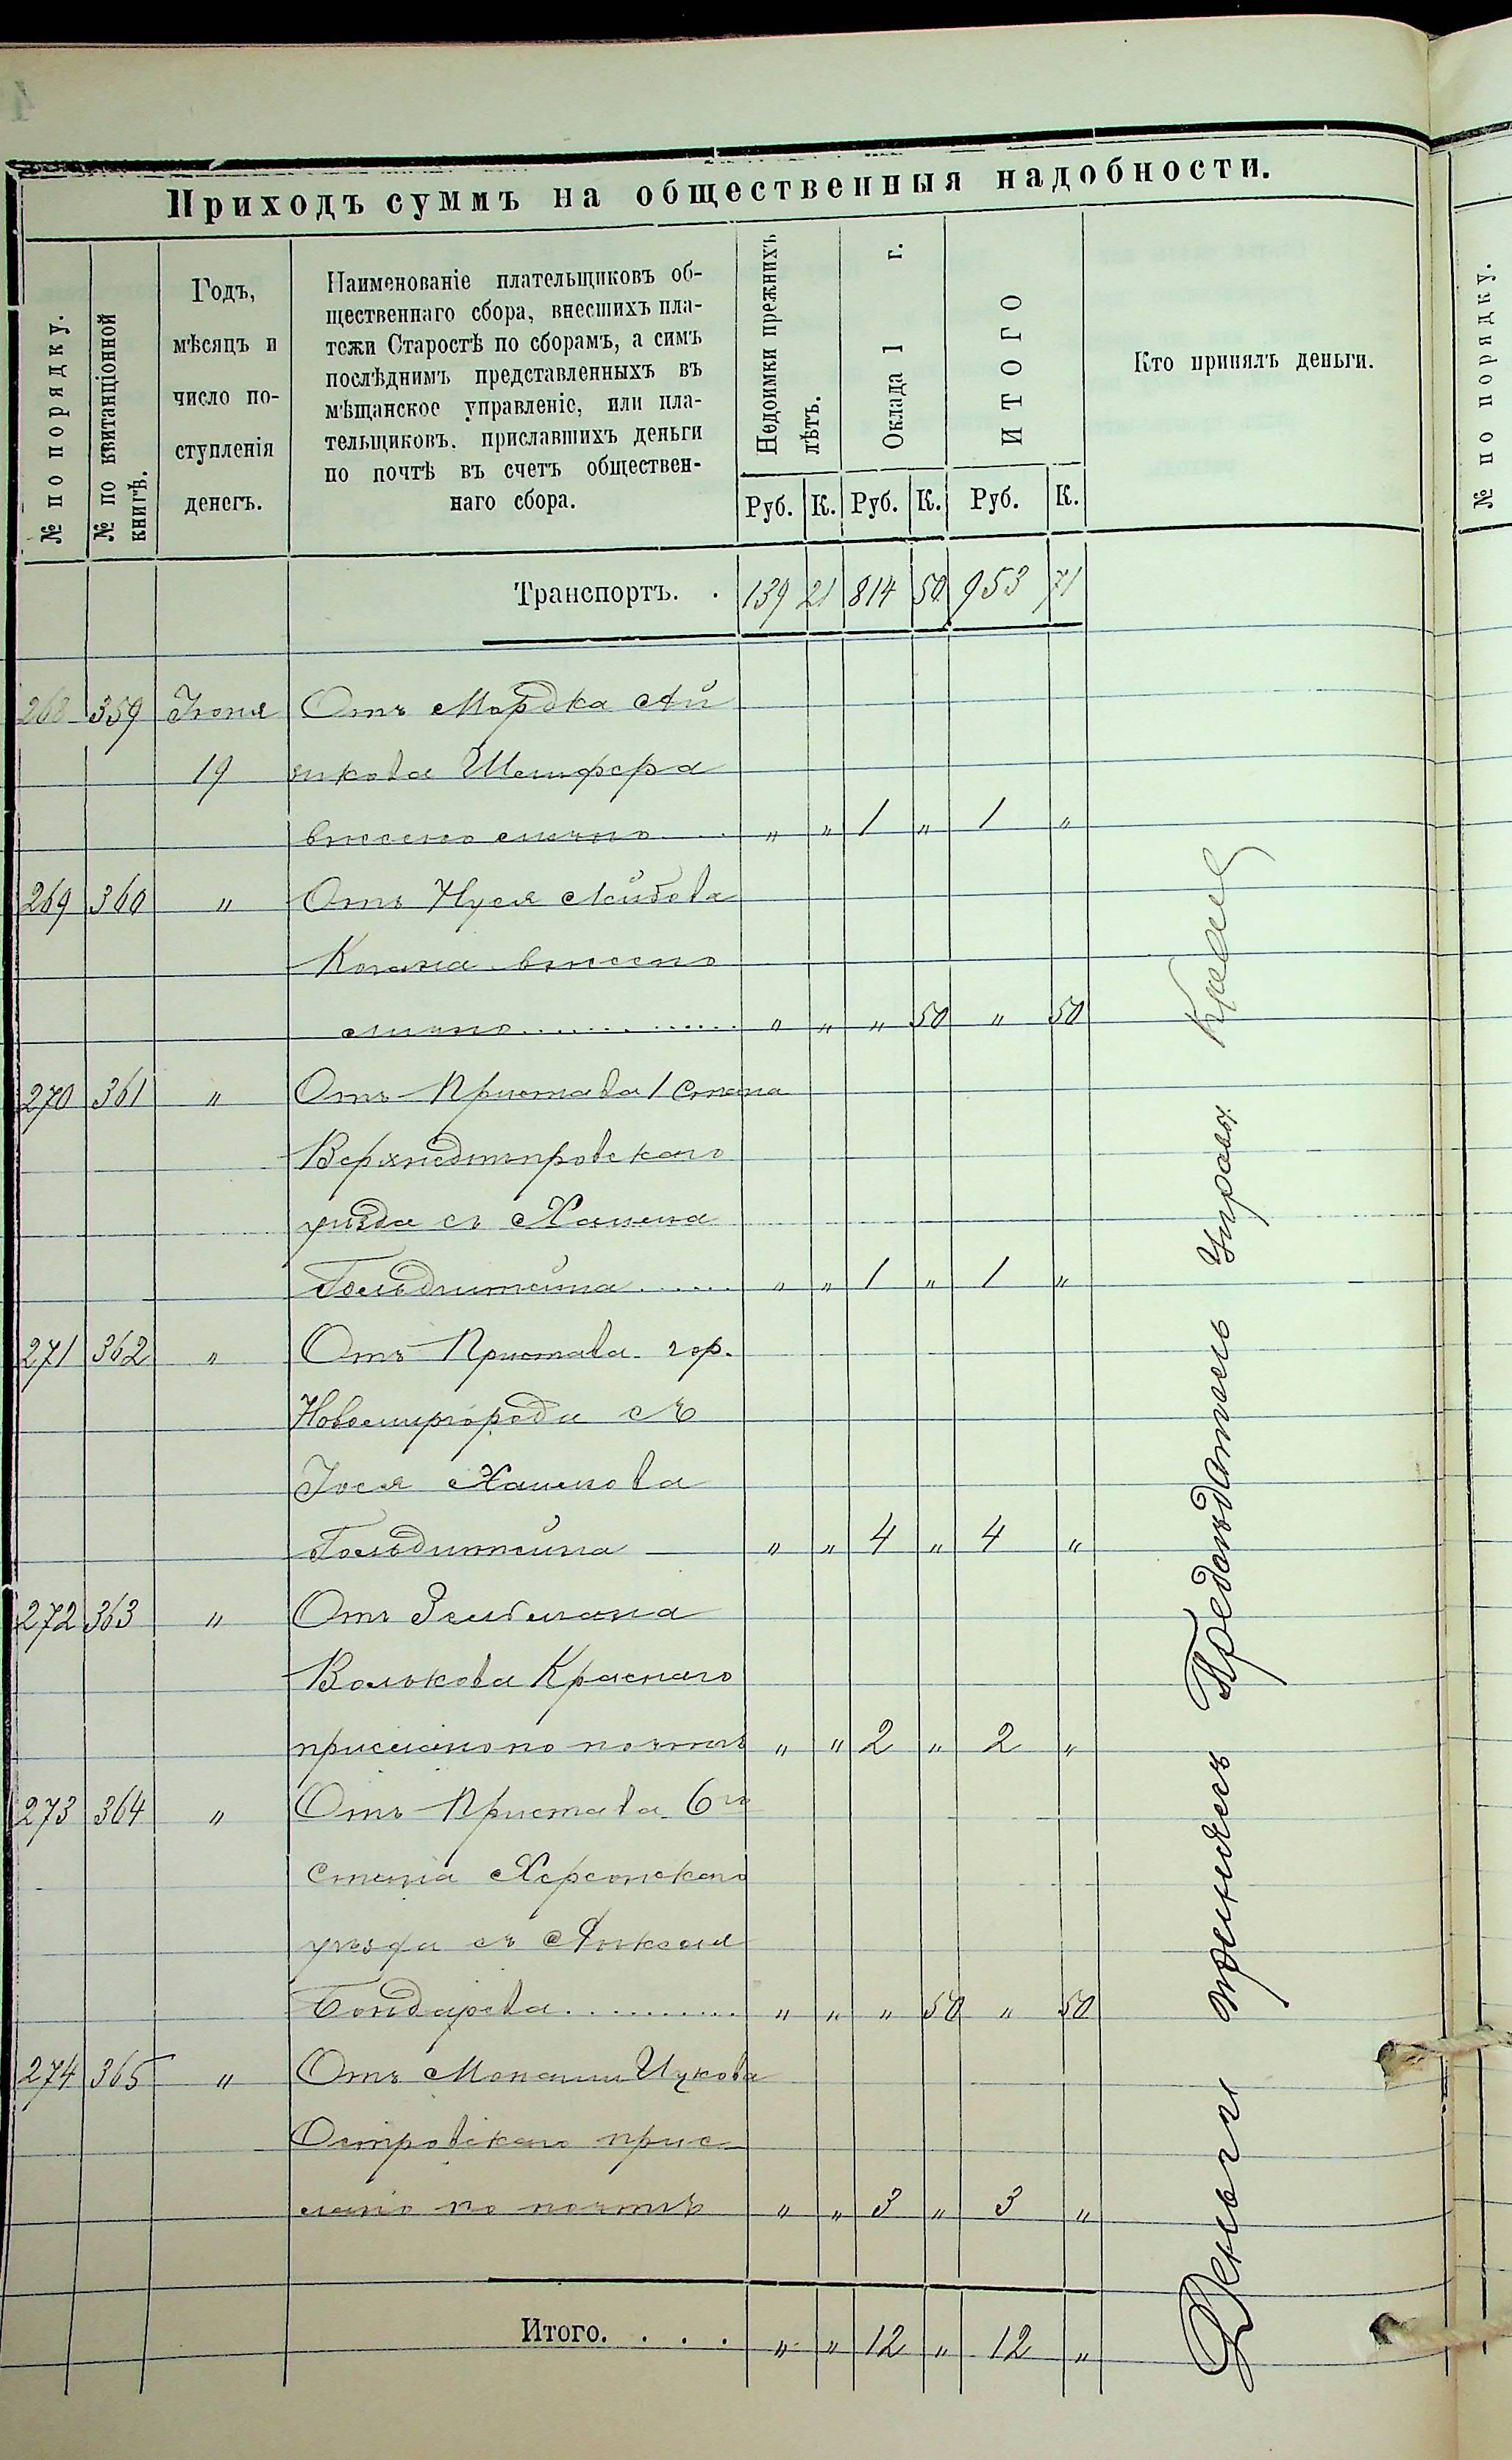 Приходъ суммъ на общественныя надобности.
№ по порядку.
№ по квитанціонной книгѣ.
Годъ,
мѣсяцъ и
число по-
ступленія
денегъ.
Наименованіе плательщиковъ об-
щественнаго сбора, внесшихъ пла-
тежи Старостѣ по сборамъ, а симъ
послѣднимъ представленныхъ въ
мѣщанское управленіе, или пла-
тельщиковъ. приславшихъ деньги
по почтѣ въ счетъ обществен-
наго сбора.
Недоимки прежнихъ лѣтъ.
Оклада 1 г.
ИТОГО
Кто принялъ деньги.
Руб. К. Руб. К. Руб. К.
Транспортъ. . 139 21 814 50 953 71
268 359 Іюня Отъ Мордка Ай
19 зикова Шемфера
внесено лично " " 1 " 1 "
269 360 " Отъ Нуся Лейбова
Когана внесено
лично............. " " " 50 " 50
270 361 " Отъ Пристава 1 Стана
Верхнеднѣпровскаго
уѣзда съ Хаима
Гольдштейна...... " " 1 " 1 "
271 362 " Отъ Пристава гор.
Новомиргорода съ
Іося Хаимова
Гольдштейна — " " 4 " 4 "
272 363 " Отъ Зельмана
Волькова Краснаго
прислано по почтѣ " " 2 " 2 "
273 364 " Отъ Пристава 6го
Стана Херсонскаго
уѣзда съ
Бондарева........... " " " 50 " 50
274 365 " Отъ Монаши Ицкова
Островскаго прис-
лано по почтѣ " " 3 " 3 "
Итого. . . . " " 12 " 12 "
Деньги принялъ Предсѣдатель Управы
№ по порядку.